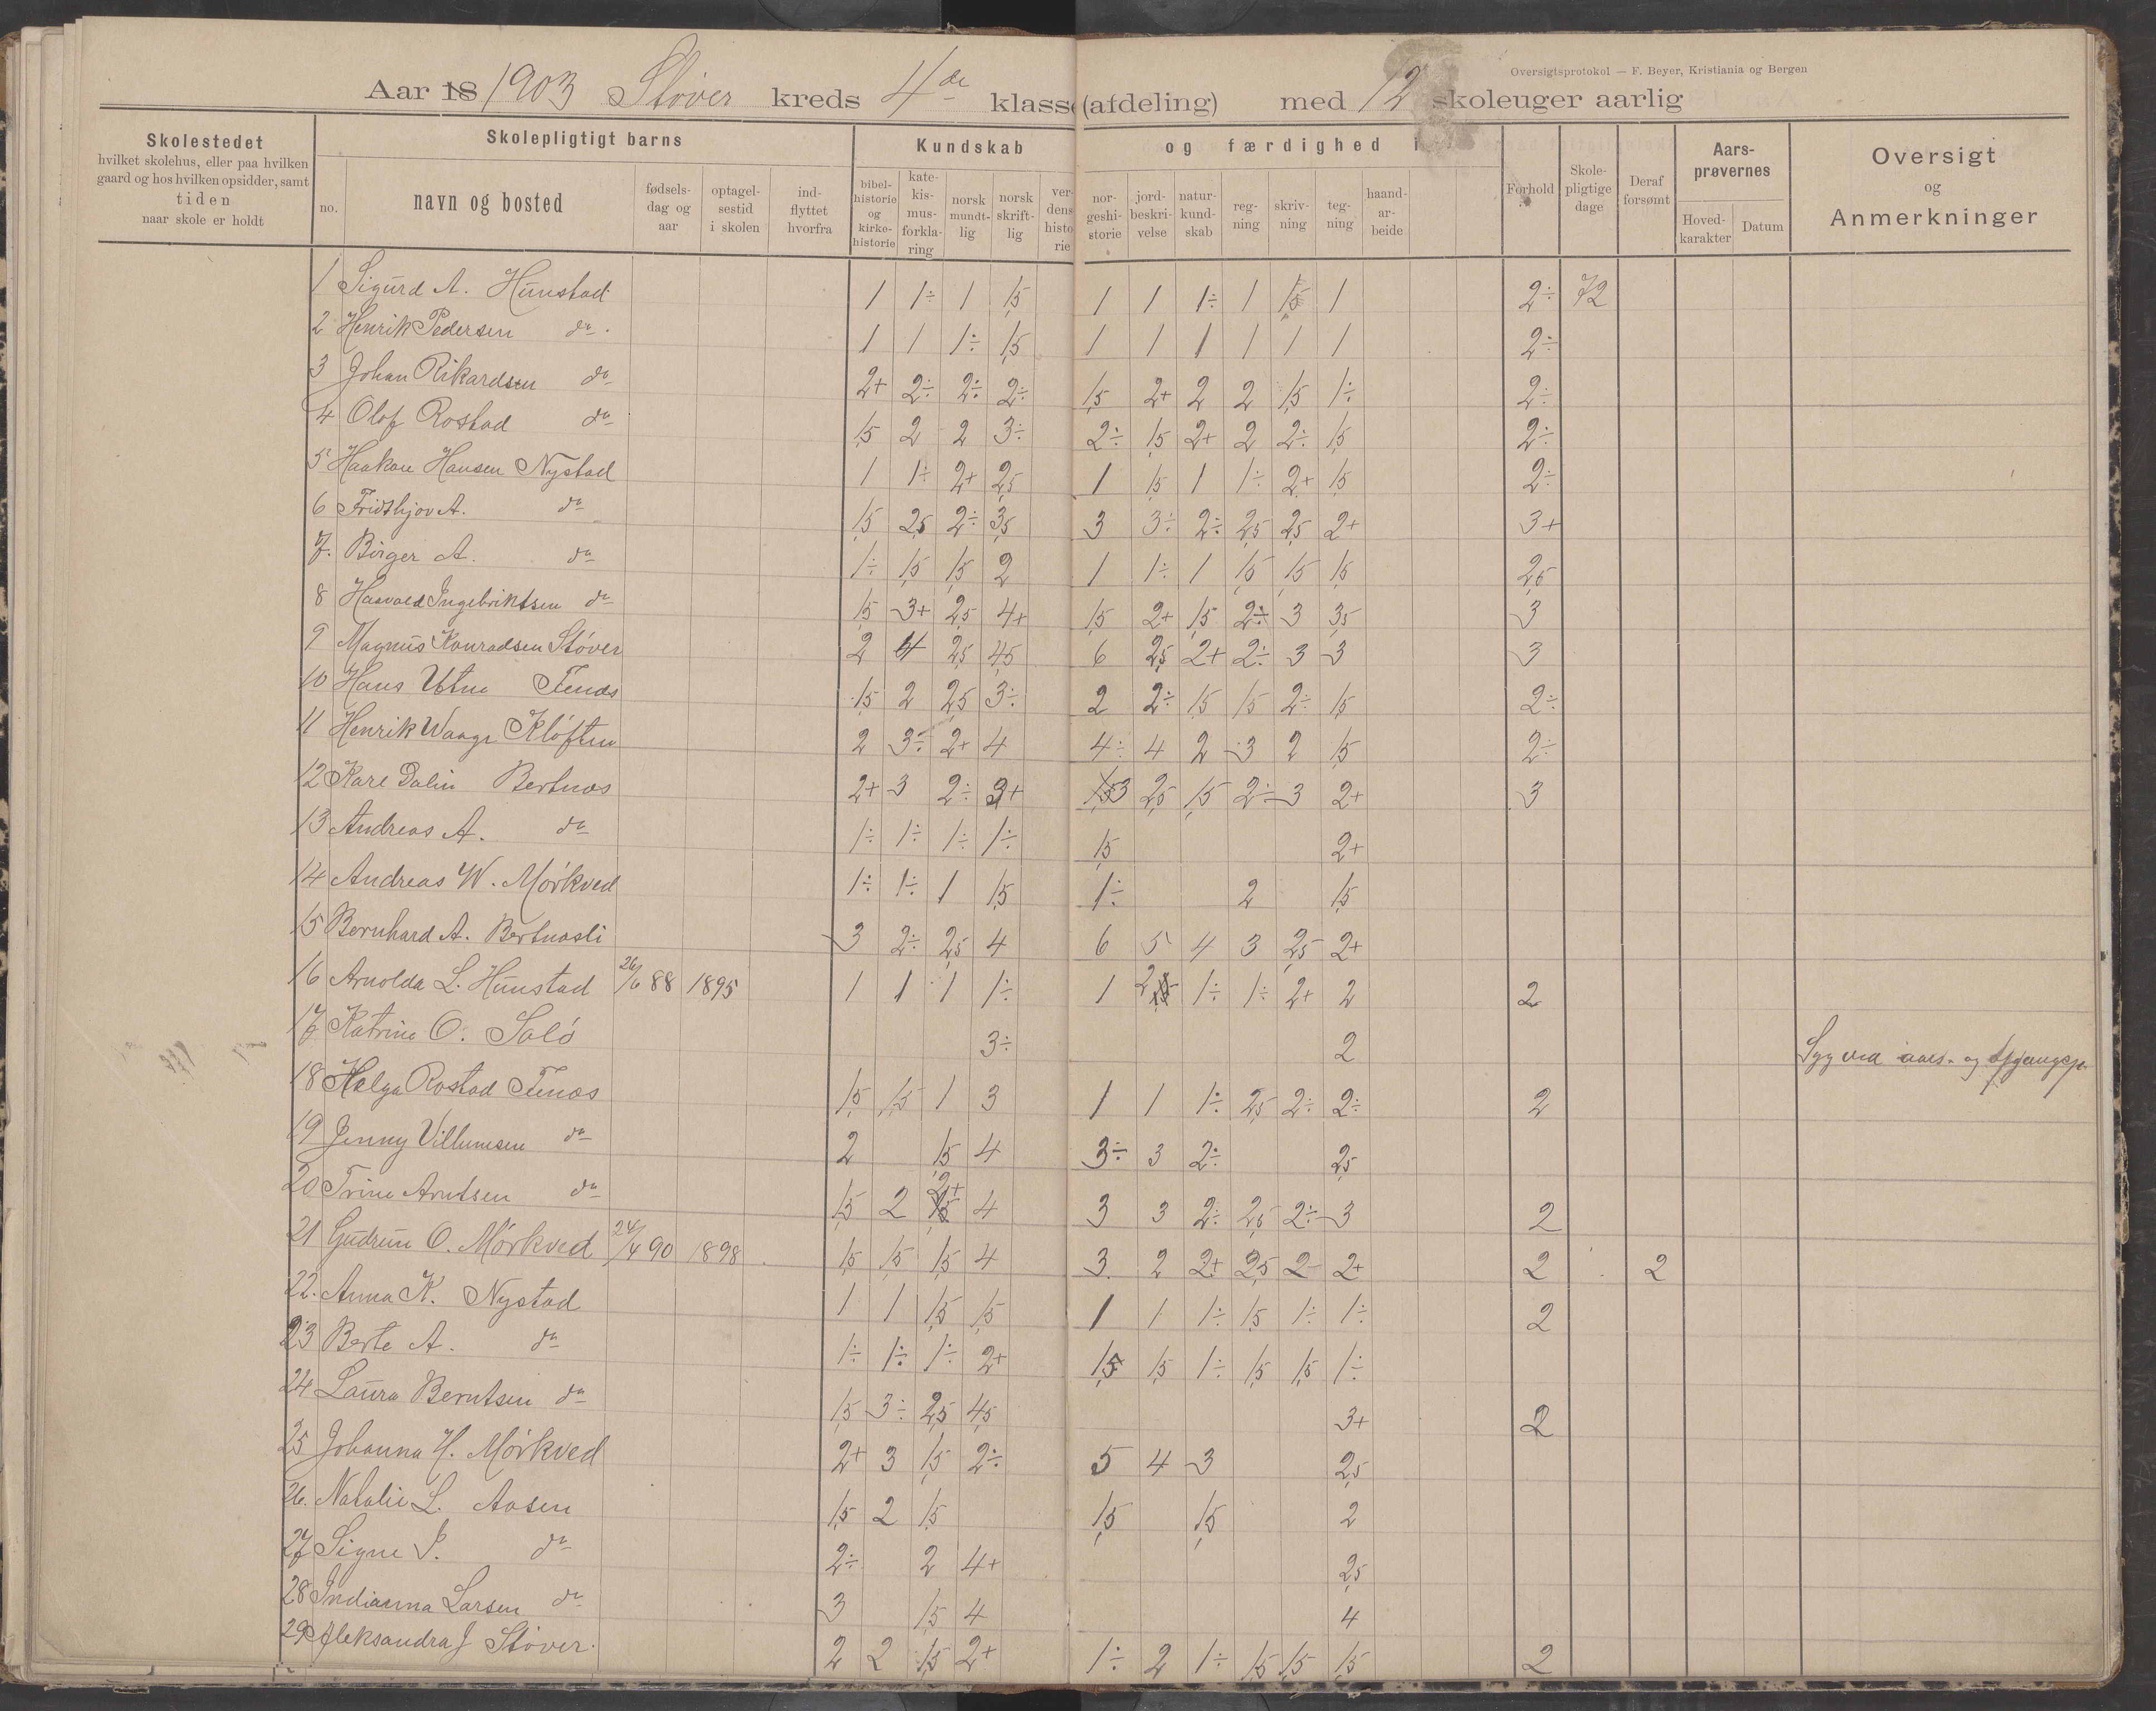 Oversigtsprotokol — F. Beyer, Kristiania og Bergen
Aar 18 1903 Støver kreds 4de klasse (afdeling) med 12 skoleuger aarlig
Skolestedet
hvilket skolehus, eller paa hvilken
gaard og hos hvilken opsidder, samt
tiden
naar skole er holdt
Skolepligtigt barns
no.
navn og bosted
fødsels-
dag og
aar
optagel-
sestid
i skolen
ind-
flyttet
hvorfra
Kundskab og færdighed i
bibel-
historie
og
kirke-
historie
kate-
kis-
mus-
forkla-
ring
norsk
mundt-
lig
norsk
skrift-
lig
ver-
dens
histo-
rie
nor-
geshi-
storie
jord-
beskri-
velse
natur-
kund-
skab
reg-
ning
skriv-
ning
teg-
ning
haand-
ar-
beide
Forhold
Skole-
pligtige
dage
Deraf
forsømt
Aars-
prøvernes
Hoved-
karakter
Datum
Oversigt
og
Anmerkninger
1 Sigurd A. Hunstad 1 1÷ 1 1,5 1 1 1÷ 1 1,5 1 2÷ 72
2 Henrik Pedersen do. 1 1 1÷ 1,5 1 1 1 1 1 1 2÷
3 Johan Rikardsen do 2+ 2÷ 2÷ 2÷ 1,5 2+ 2 2 1,5 1÷ 2÷
4 Olof Rostad do 1,5 2 2 3÷ 2÷ 1,5 2+ 2 2÷ 1,5 2÷
5 Haakon Hansen Nystad 1 1÷ 2+ 2,5 1 1,5 1 1÷ 2+ 1,5 2÷
6 Fridthjov A. do 1,5 2,5 2÷ 3,5 3 3÷ 2÷ 2,5 2,5 2+ 3+
7. Birger A. do 1÷ 1,5 1,5 2 1 1÷ 1 1,5 1,5 1,5 2,5
8 Ingebriktsen do 1,5 3+ 2,5 4+ 1,5 2+ 1,5 2÷ 3 3,5 3
9 Magnus Konradsen Støver 2 4 2,5 4,5 6 2,5 2+ 2÷ 3 3 3
10 Hans Utne Tenæs 1,5 2 2,5 3÷ 2 2÷ 1,5 1,5 2÷ 1,5 2÷
11 Henrik Waage Kløften 2 3÷ 2+ 4 4÷ 4 2 3 2 1,5 2÷
12 Kare Dalin Bertnæs 2+ 3 2÷ 3+ 1,5 3 2,5 1,5 2÷ 3 2+ 3
13 Andreas A. do 1÷ 1÷ 1÷ 1÷ 1,5 2+
14 Andreas W. Mørkved 1÷ 1÷ 1 1,5 1÷ 2 1,5
15 Bernhard A. Bertnæsli 3 2÷ 2,5 4 6 5 4 3 2,5 2+
16 Arnolda L. Hunstad 26/6 88 1895 1 1 1 1÷ 1 2 1÷ 1÷ 2+ 2 2
17 Katrine O. Salö 3÷ 2 Syg ved aars- og afgangspr.
18 Helga Rostad Tenæs 1,5 1,5 1 3 1 1 1÷ 2,5 2÷ 2÷ 2
19 Jenny Villumsen do 2 1,5 4 3÷ 3 2÷ 2,5
20 Trine Arntsen do 1,5 2 2+ 4 3 3 2÷ 2,5 2÷ 3 2
21 Gudrun O. Mørkved 24/4 90 1898 1,5 1,5 1,5 4 3 2 2+ 2,5 2- 2+ 2 2
22. Anna K. Nystad 1 1 1,5 1,5 1 1 1÷ 1,5 1÷ 1÷ 2
23 Berte A. do 1÷ 1÷ 1÷ 2+ 1,5 1,5 1÷ 1,5 1,5 1÷
24 Laura Berntsen do 1,5 3÷ 2,5 4,5 3+ 2
25 Johanna H. Mørkved 2+ 3 1,5 2÷ 5 4 3 2,5
26. Natalie L. Aasen 1,5 2 1,5 1,5 1,5 2
27 Signe P. do 2÷ 2 4+ 2,5
28 Indianna Larsen do 3 1,5 4 4
29 Aleksandra J Støver. 2 2 1,5 2+ 1÷ 2 1÷ 1,5 1,5 1,5 2